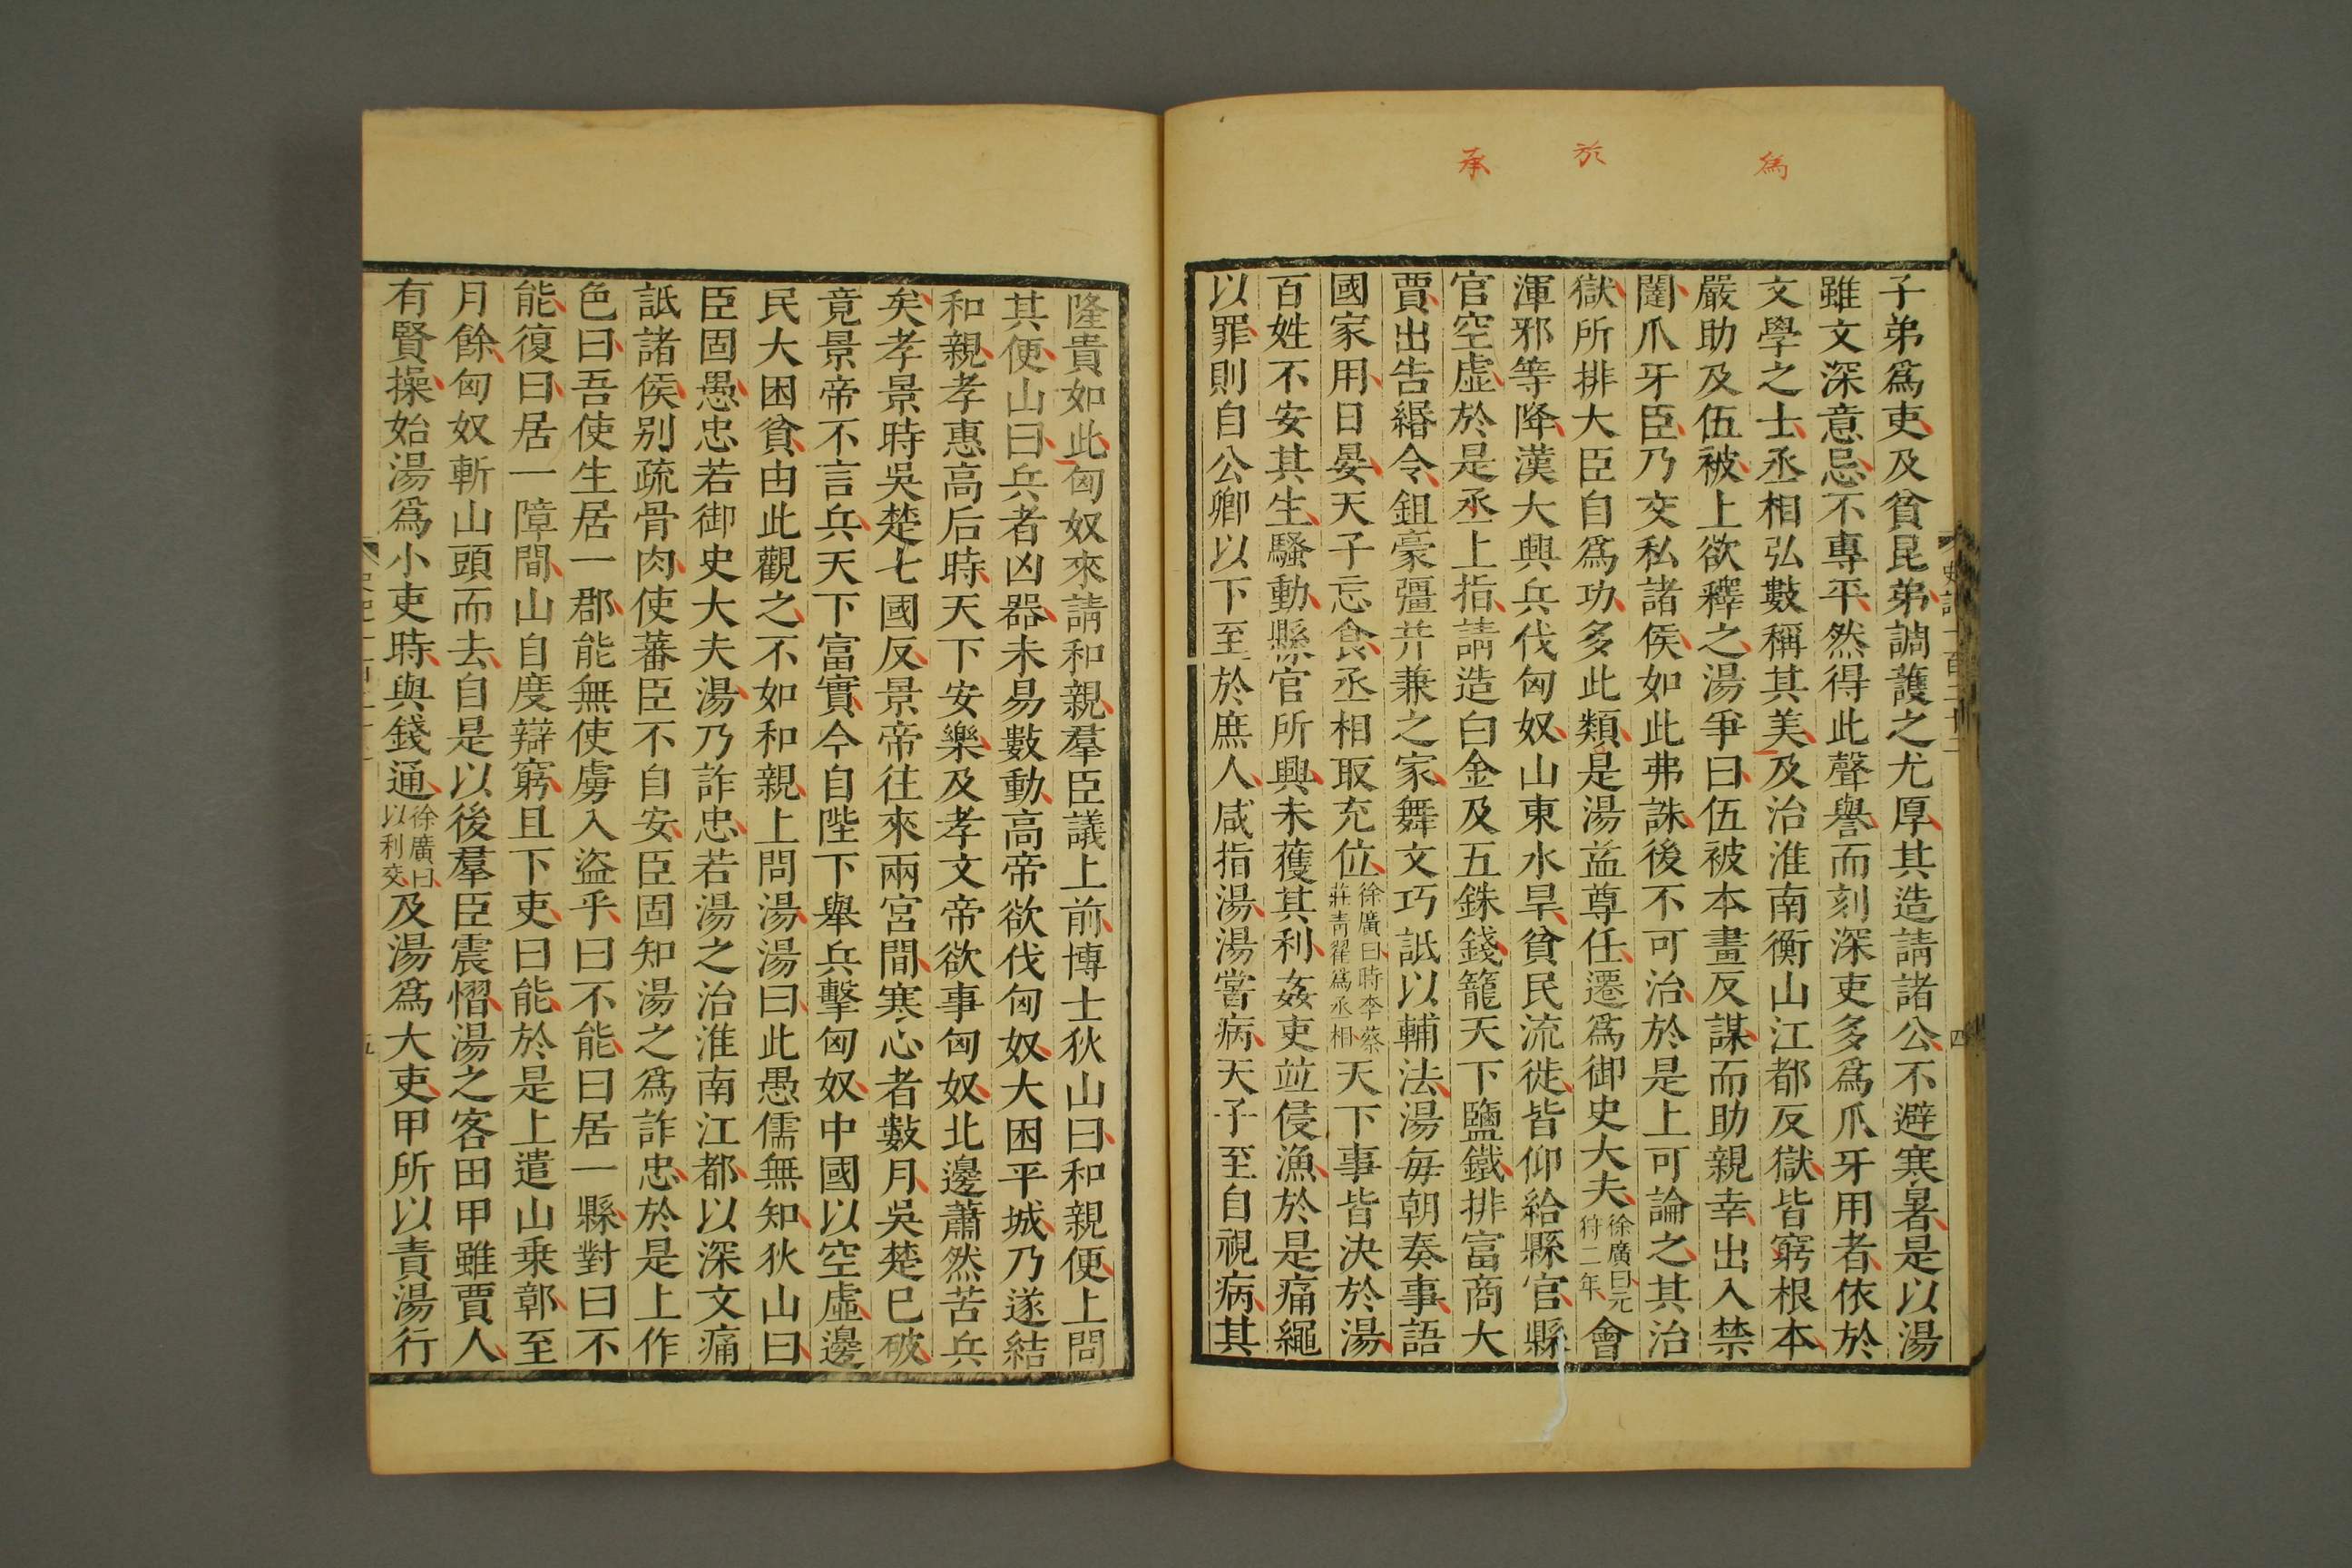 為
於
承
子弟爲吏及貧昆弟調護之尤厚其造請諸公不避寒暑是以湯
雖文深意忌不專平然得此聲譽而刻深吏多爲爪牙用者依於
文學之士丞相弘數稱其美及治淮南衡山江都反獄皆窮根本
嚴助及伍被上欲釋之湯爭曰伍被本畫反謀而助親幸出入禁
闥爪牙臣乃交私諸侯如此弗誅後不可治於是上可論之其治
獄所排大臣自爲功多此類是湯益尊任遷爲御史大夫徐廣曰元狩二年會
渾邪等降漢大興兵伐匈奴山東水旱貧民流徙皆仰給縣官縣
官空虛於是丞上指請造白金及五銖錢籠天下鹽鐵排富商大
賈出告緡令鉏豪彊并兼之家舞文巧詆以輔法湯每朝奏事語
國家用日晏天子忘食丞相取充位徐廣曰時李蔡莊青翟爲丞相天下事皆決於湯
百姓不安其生騷動縣官所興未獲其利姦吏並侵漁於是痛繩
以罪則自公卿以下至於庶人咸指湯湯嘗病天子至自視病其
隆貴如此匈奴來請和親羣臣議上前博士狄山曰和親便上問
其便山曰兵者凶器未易數動高帝欲伐匈奴大困平城乃遂結
和親孝惠高后時天下安樂及孝文帝欲事匈奴北邊蕭然苦兵
矣孝景時吳楚七國反景帝往來兩宮間寒心者數月吳楚已破
竟景帝不言兵天下富實今自陛下舉兵擊匈奴中國以空虛邊
民大困貧由此觀之不如和親上問湯湯曰此愚儒無知狄山曰
臣固愚忠若御史大夫湯乃詐忠若湯之治淮南江都以深文痛
詆諸侯別疏骨肉使蕃臣不自安臣固知湯之爲詐忠於是上作
色曰吾使生居一郡能無使虜入盜乎曰不能曰居一縣對曰不
能復曰居一障間山自度辯窮且下吏曰能於是上遣山乗鄣至
月餘匈奴斬山頭而去自是以後羣臣震慴湯之客田甲雖賈人
有賢操始湯爲小吏時與錢通徐廣曰以利交及湯爲大吏甲所以責湯行